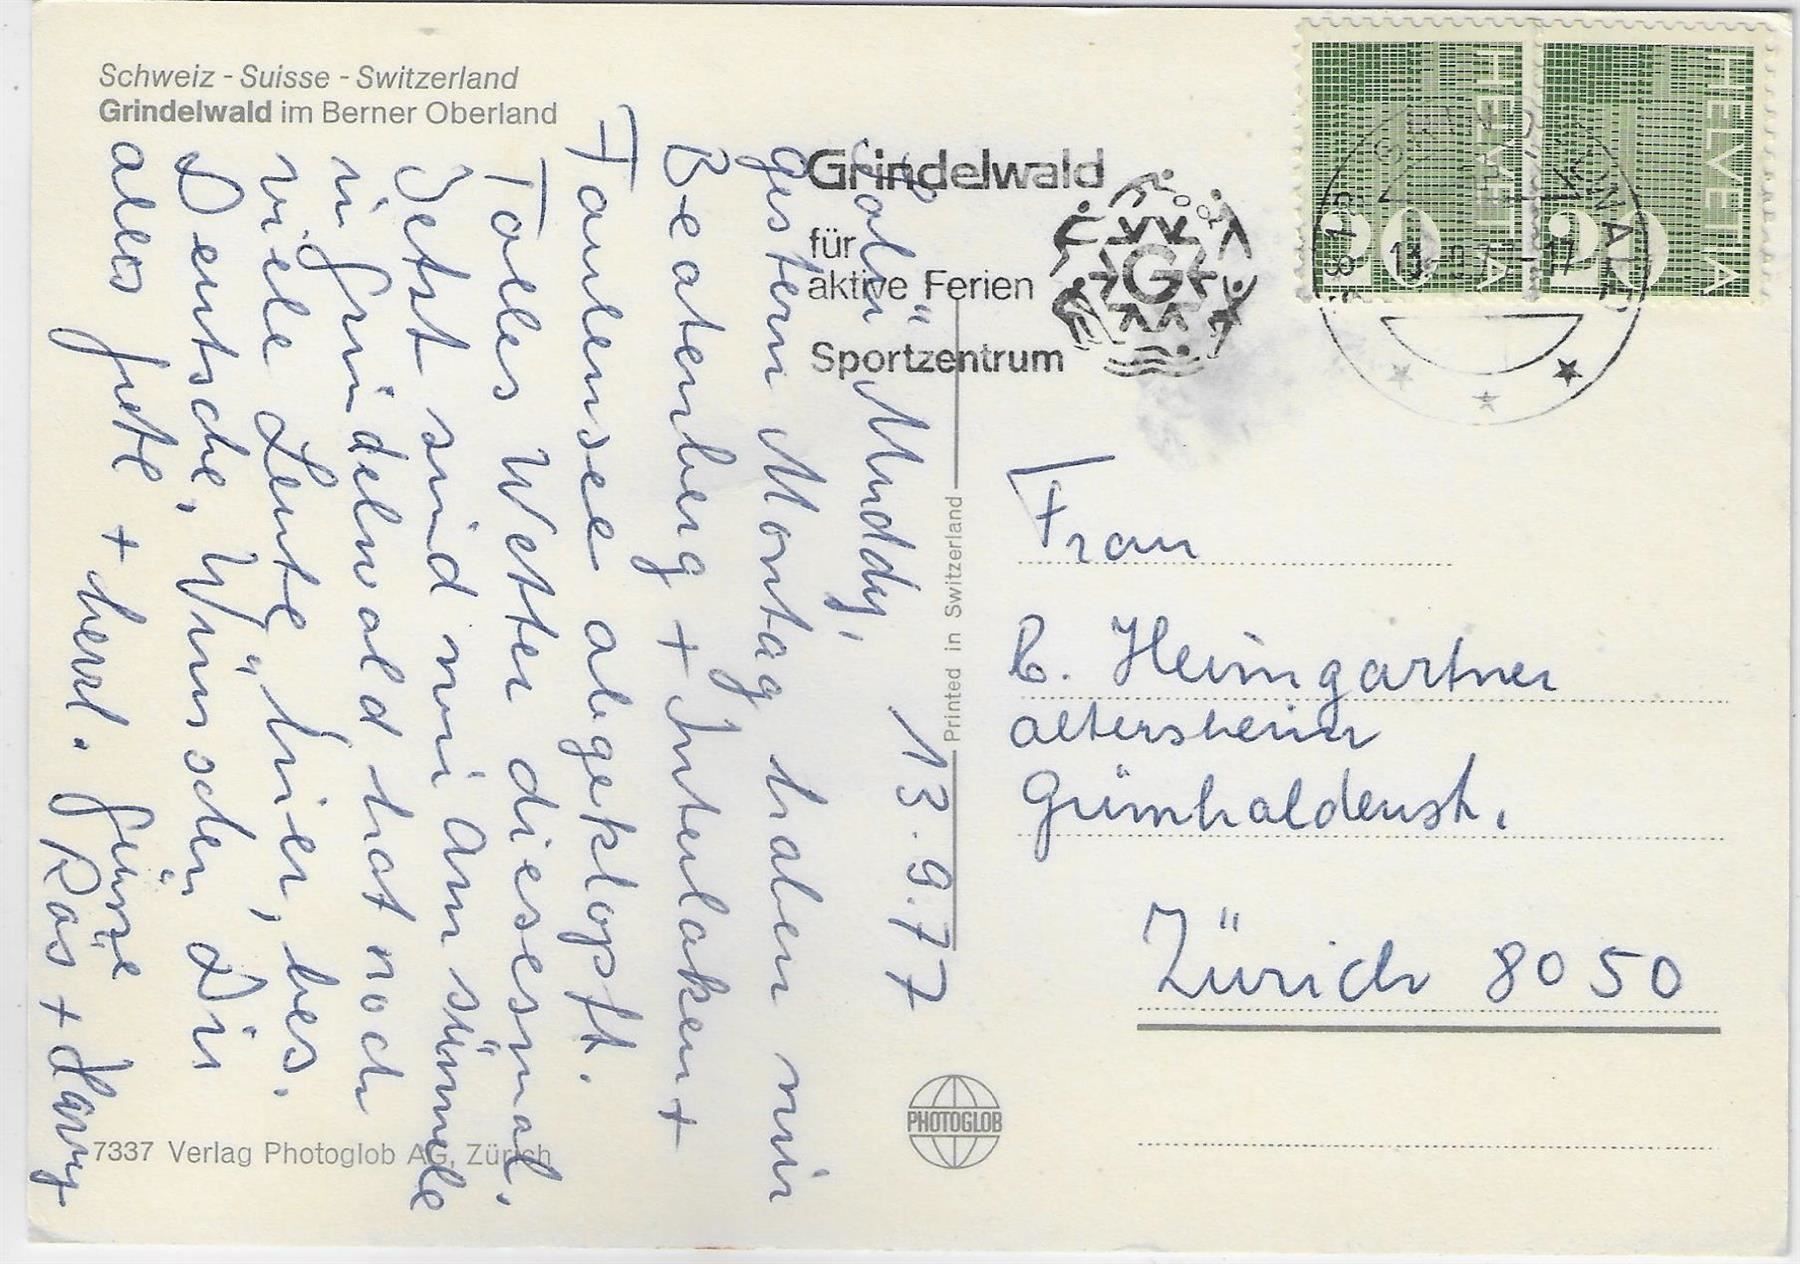 Schweiz - Suisse - Switzerland
Grindelwald im Berner Oberland
Grindelwald
für
aktive Ferien
Sportzentrum
HELVETIA
20
HELVETIA
20
13.9.77
Muddy,
gestern Montag haben wir
Beatenberg + Interlaken +
Faulensee abgeklopft.
Tolles Wetter diesesmal,
Jetzt sind wir am sünnele
in Grindelwald hat noch
viele Leute" hier, bes.
Deutsche. Wünschen Dir
alles Gute + herzl. Grüsse
Ros + Harry
Printed in Switzerland
PHOTOGLOB
7337 Verlag Photoglob AG, Zürich
Frau
R. Heimgartner
Altersheim
Grünhaldenstr.
Zürich 8050